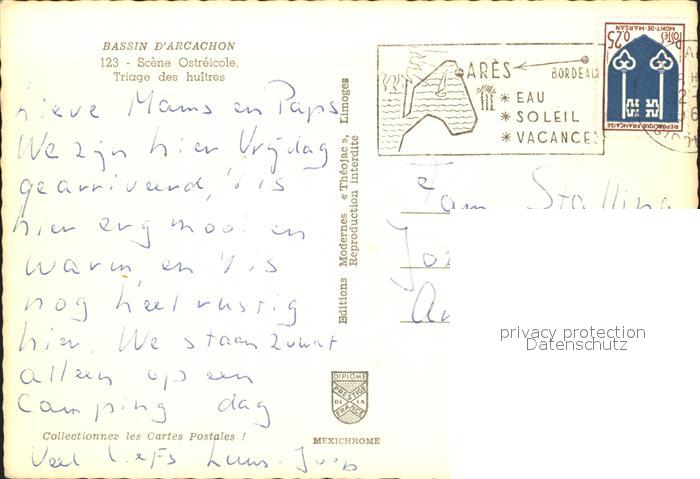 BASSIN D'ARCACHON
123 - Scène Ostréicole,
Triage des huîtres
lieve Mams en Paps
We zijn hier Vrijdag
gearriveerd, 't is
hier erg mooi en
warm, en 't is
nog heel rustig
hier. We staan zowat
alleen op een
Camping dag
Collectionnez les Cartes Postales !
Veel liefs Luus. Joop
Editions Modernes « Théojac », Limoges
Reproduction interdite
DIPLOME
PRESTIGE
DE LA
FRANCE
MEXICHROME
ARÈS
BORDEAUX
* EAU
* SOLEIL
* VACANCES
POSTES
0,25
MONT-DE-MARSAN
REPUBLIQUE FRANÇAISE
Fam Stalling
privacy protection
Datenschutz